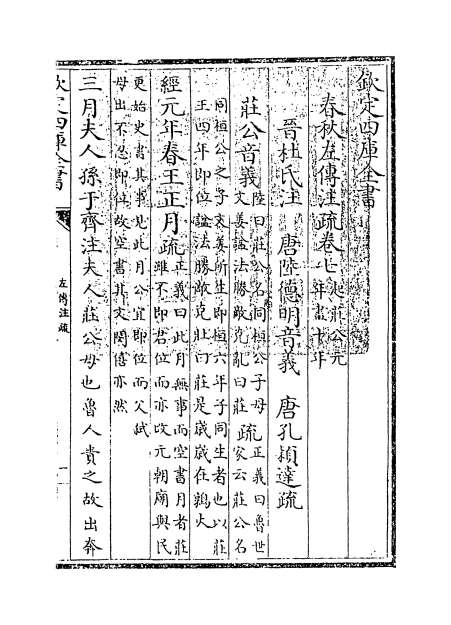 欽定四庫全書
春秋左傳注疏卷七起莊公元年盡十年
晉杜氏注 唐陸德明音義 唐孔穎達疏
莊公音義陸曰莊公名同桓公子母文姜謚法勝敵克亂曰莊疏正義曰魯世家云莊公名
同桓公之子文姜所生即桓六年子同生者也以莊王四年即位謚法勝敵克壯曰莊是歲歲在鶉火
經元年春王正月疏正義曰此月無事而空書月者莊雖不即君位而亦改元朝廟與民
更始史書其事見此月公宜即位而父弑母出不忍即位故空書其文閔僖亦然
三月夫人孫于齊注夫人莊公母也魯人責之故出奔
欽定四庫全書
左傳注疏
一